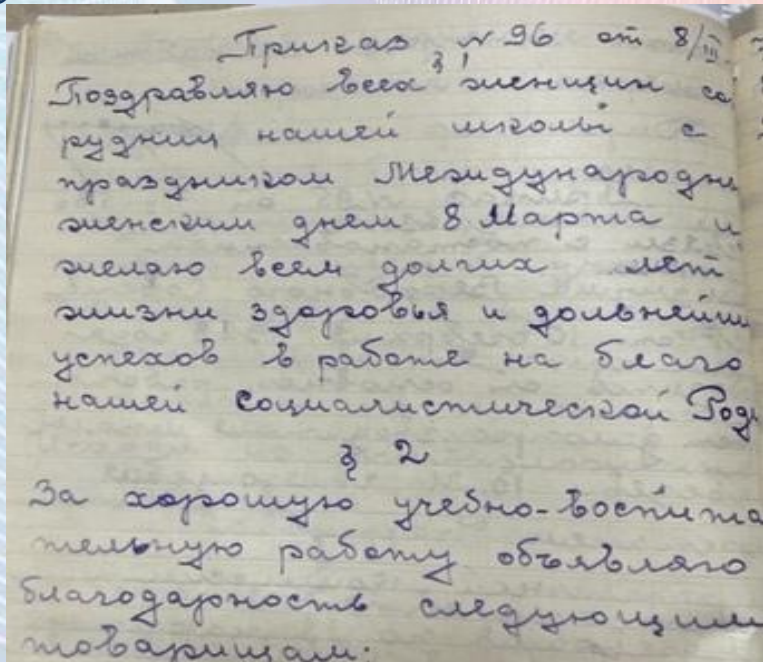 Приказ №96 от 8/III
§ 1
Поздравляю всех женщин со
рудниц нашей школы с
праздником Международн
женским днем 8 Марта и
желаю всем долгих лет
жизни здоровья и дольнейш
успехов в работе на благо
нашей социалистической Род
§ 2
За хорошую учебно-воспита
тельную работу объявляю
благодарность следующим
товарищам: